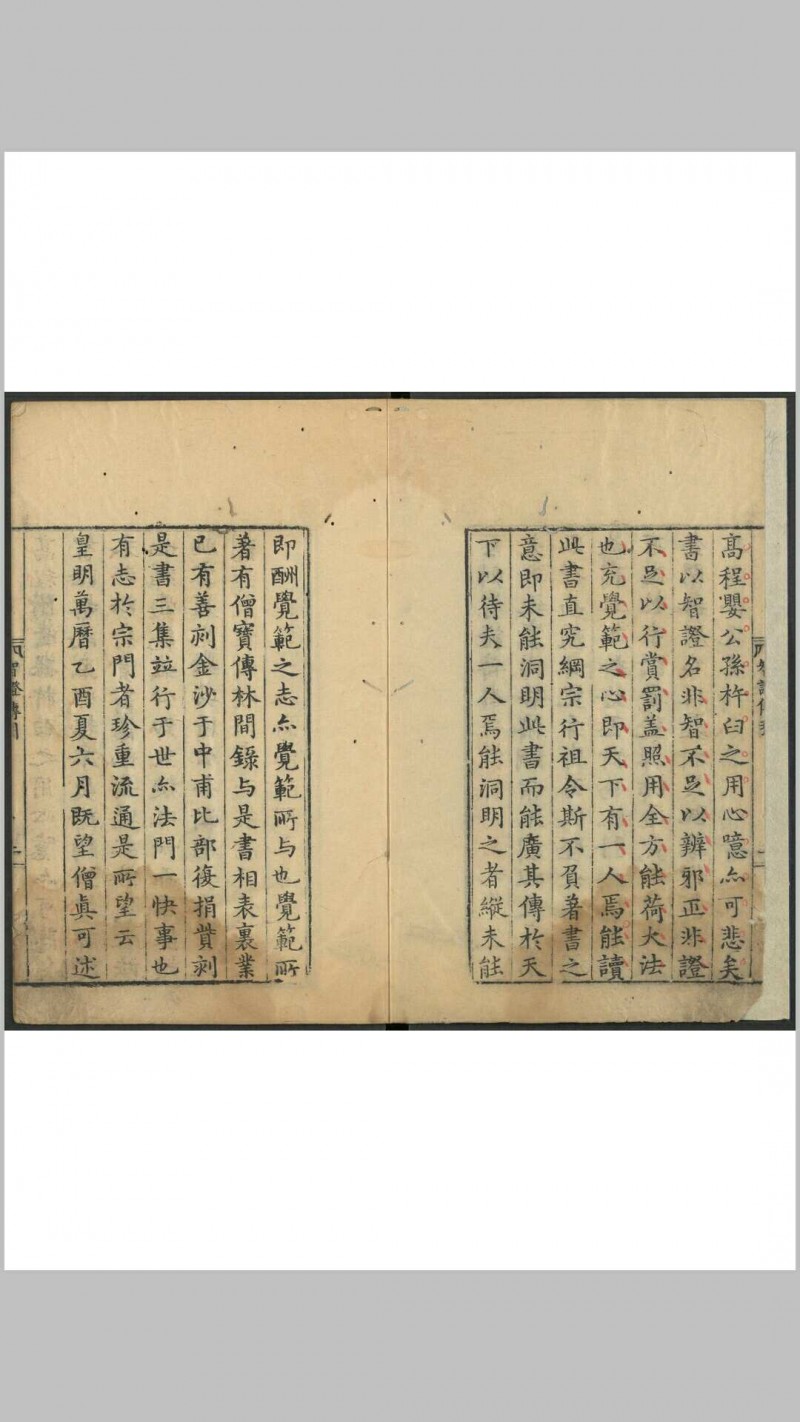 髙程嬰公孫杵臼之用心噫亦可悲矣
書以智證名非智不足以辨邪正非證
不足以行賞罰盖照用全方能荷大法
也充覺範之心即天下有一人焉能讀
此書直究綱宗行祖令斯不負著書之
意即未能洞明此書而能廣其傳於天
下以待夫一人焉能洞明之者縱未能
即酬覺範之志亦覺範所与也覺範所
著有僧寶傳林間錄与是書相表裏業
已有善刻金沙于中甫比部復捐貲刻
是書三集並行于世亦法門一快事也
有志於宗門者珍重流通是所望云
皇明萬曆乙酉夏六月旣望僧眞可述